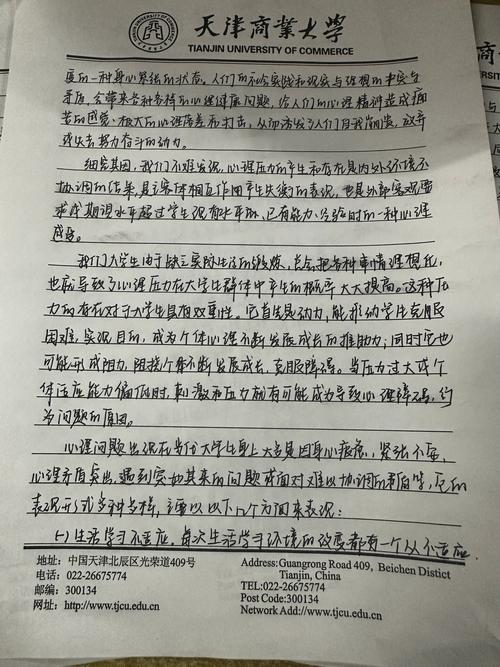 天津商業大學
TIANJIN UNIVERSITY OF COMMERCE
的一种身心紧张的状态。人们的社会实践和现实与理想的冲突与
矛盾，会带来各种各样的心理健康问题，给人们的心理精神造成痛
苦的感觉、极大的心理落差和打击，从而诱发了人们自我崩溃，放弃
或失去努力奋斗的动力。
细究其因，我们不难发现，心理压力的产生和存在是内外环境不
协调的结果，是主客体相互作用产生失衡的表现，也是外部客观需
求或期望水平超过学生现有水平、已有能力、经验时的一种心理
感受。
我们大学生由于缺乏实际生活的锻炼，总会把各种事情理想化，
也就导致了心理压力在大学生群体中产生的概率大大提高。这种压
力的存在对于大学生具有双重性。它首先是动力，能形成学生克服
困难，实现目的，成为个体心理不断发展成长的推动力；同时它也
可能形成阻力，阻挠个体不断发展成长，克服障碍。当压力过大或个
体适应能力偏低时，刺激和压力就有可能成为导致心理障碍，行
为问题的原因。
心理问题出现在当代大学生身上大多是因身心疲惫，紧张不安，
心理矛盾突出，遇到突如其来的问题或面对难以协调的矛盾等，它的
表现形式多种多样，主要以以下几个方面来表现：
生活学习不适应，每次生活学习环境的改变都有一个从不适应
地址：中国天津北辰区光荣道409号
电话：022-26675774
邮编：300134
网址：http://www.tjcu.edu.cn
Address:Guangrong Road 409, Beichen Distict
Tianjin, China
TEL:022-26675774
Post Code:300134
Network Add://www.tjcu.edu.cn